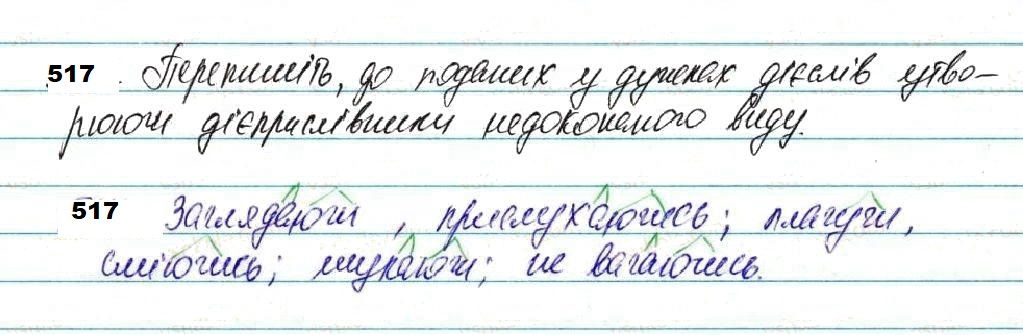 517 . Перепишіть, до поданих у дужках дієслів утво-
рюючи дієприслівники недоконаного виду.
517 Заглядаючи, прислухаючись; плачучи,
сміючись; шукаючи; не вагаючись.